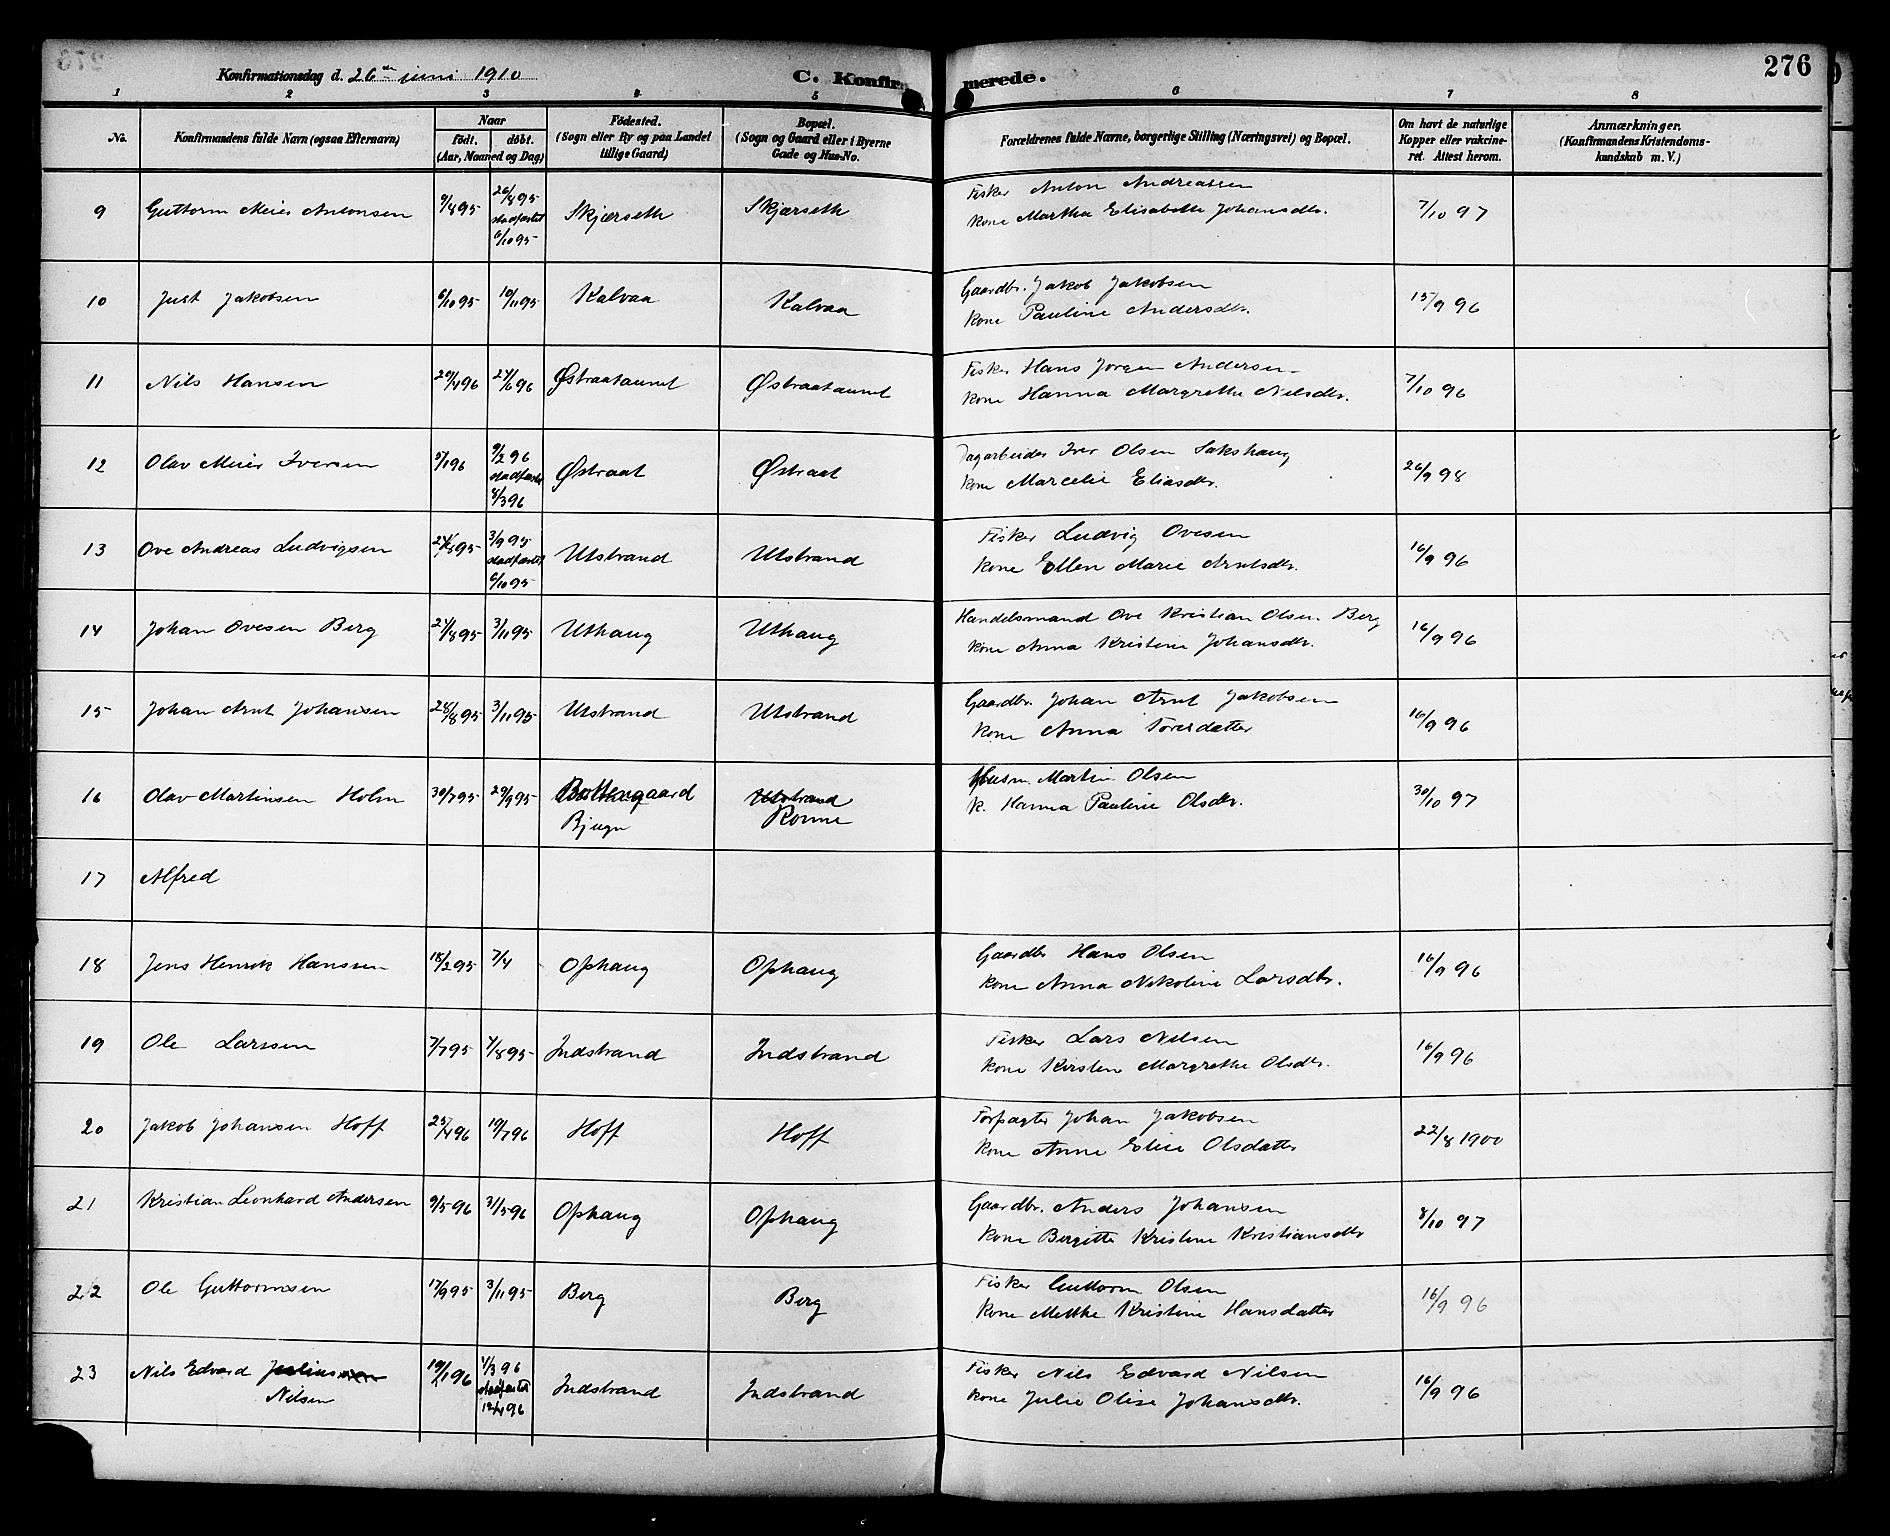 Konfirmationsdag d. 26de juni 1910
C. Konfirmerede.
276
1 2 3 4 5 6 7 8
No.
Konfirmandens fulde Navn (ogsaa Efternavn)
Naar
födt. döbt.
(Aar, Maaned og Dag)
Födested.
(Sogn eller By og paa Landet
tillige Gaard)
Bopæl.
(Sogn og Gaard eller i Byerne
Gade og Hus-No.
Forældrenes fulde Navne, borgerlige Stilling (Næringsvei) og Bopæl.
Om havt de naturlige
Kopper eller vakcine-
ret. Attest herom.
Anmærkninger.
(Konfirmandens Kristendoms-
kundskab m. V.)
9 Guttorm Meier Antonsen 9/8 95 26/8 95 stadfæstet 6/10 95 Skjærseth Skjærseth
Fisker Anton Andreassen
kone Martha Elisabeth Johansdtr. 7/10 97
10 Just Jakobsen 6/10 95 10/11 95 Kalvaa Kalvaa
Gaardbr. Jakob Jakobsen
kone Pauline Andersdtr. 15/9 96
11 Nils Hansen 20/4 96 24/6 96 Østraataunet Østraataunet
Fisker Hans Jørgen Andersen
kone Hanna Margrethe Nilsdtr. 7/10 96
12 Olav Meier Iversen 5/1 96 9/2 96 stadfæstet 8/3 96 Østraat Østraat
Dagarbeider Iver Olsen Sakshaug
kone Marcelie Eliasdtr. 26/9 98
13 Ove Andreas Ludvigsen 24/8 95 3/9 95 stadfæstet 6/10 95 Utstrand Utstrand
Fisker Ludvig Ovesen
kone Ellen Marie Arntsdtr. 16/9 96
14 Johan Ovesen Berg 24/8 95 3/11 95 Uthaug Uthaug
Handelsmand Ove Kristian Olsen Berg
kone Anna Kristine Johansdtr. 16/9 96
15 Johan Arnt Johansen 28/8 95 3/11 95 Utstrand Utstrand
Gaardbr. Johan Arnt Jakobsen
kone Anna Toresdatter 16/9 96
16 Olav Martinsen Holm 30/7 95 29/9 95 Bottengaard Utstrand
Bjugn Romme
Husm. Martin Olsen
k. Hanna Pauline Olsdtr. 30/10 97
17 Alfred
18 Jens Henrik Hanssen 18/2 95 7/4 Ophaug Ophaug
Gaardbr Hans Olsen
kone Anna Nikoline Larsdtr. 16/9 96
19 Ole Larssen 7/7 95 4/8 95 Indstrand Indstrand
Fisker Lars Nilsen
kone Kirsten Margrethe Olsdtr. 16/9 96
20 Jakob Johansen Hoff 25/4 96 19/7 96 Hoff Hoff
Forpagter Johan Jakobsen
kone Anne Elise Olsdatter 22/8 1900
21 Kristian Leonhard Andersen 9/5 96 31/5 96 Ophaug Ophaug
Gaardbr. Anders Johansen
kone Bergitte Kristine Kristiansdtr 8/10 97
22 Ole Guttormsen 17/9 95 3/11 95 Berg Berg
Fisker Guttorm Olsen
kone Metthe Kristine Hansdatter 16/9 96
23 Nils Edvard Juliussen 19/1 96 1/3 96 stadfæstet 12/4 96 Indstrand Indstrand
Nilsen
Fisker Nils Edvard Nilsen
kone Julie Olise Johansdtr. 16/9 96